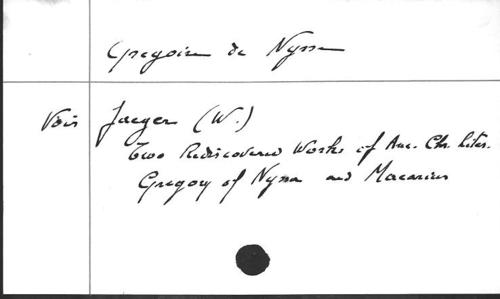 Gregoire de Nysse
Vois Jaeger (W.)
Two Rediscovered Works of Anc. Chr. Liter.
Gregory of Nyssa and Macarius